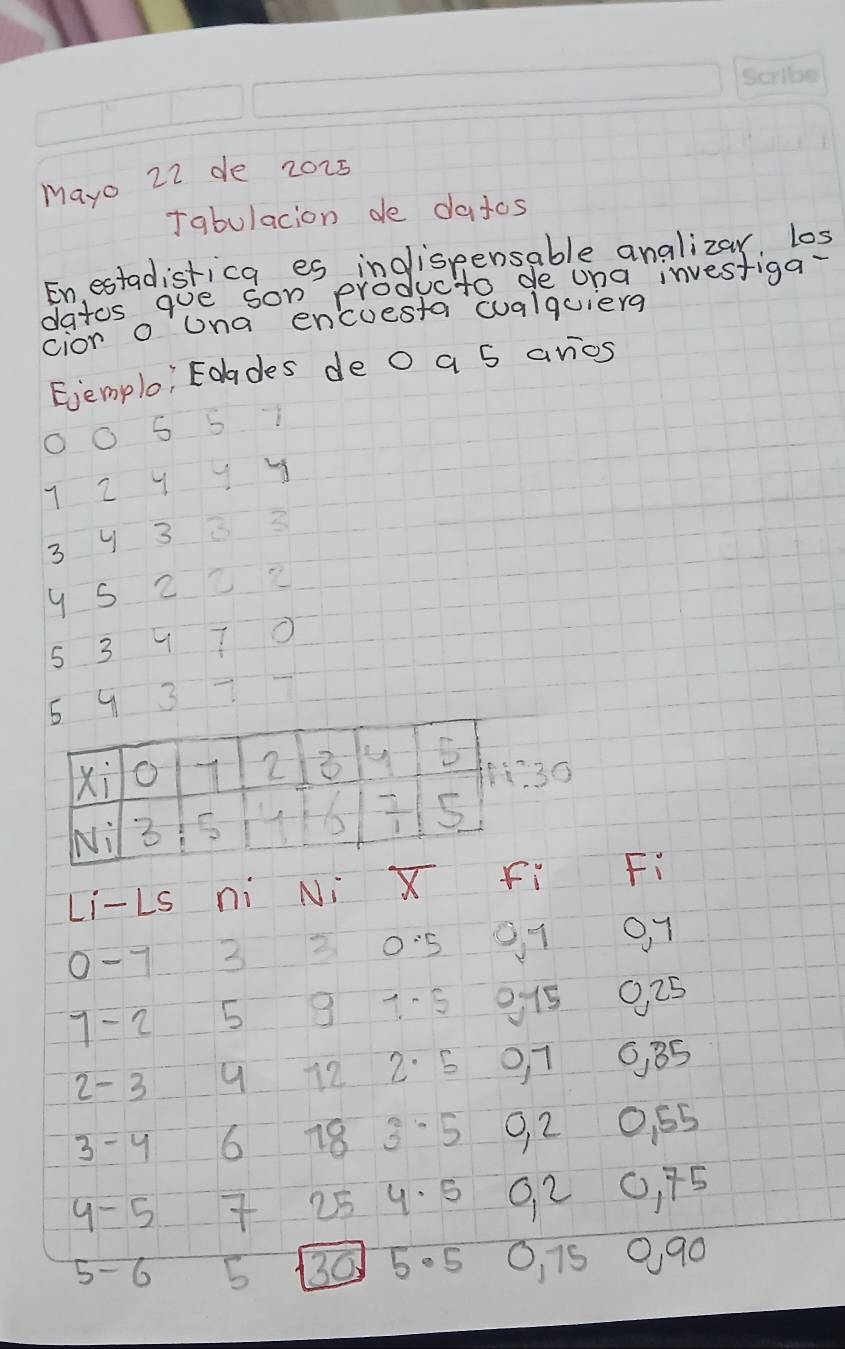 Scribe
Mayo 22 de 2025
Tabulacion de datos
En estadistica es indispensable analizar los
datos que son producto de una investiga-
cion o una encuesta cualquiera
Ejemplo: Edades de 0 a 5 años
0 0 5 5 1
1 2 4 4 4
3 4 3 3 3
4 5 2 2 2
5 3 4 1 0
5 4 3 1 1
Xi 0 1 2 3 4 5
Ni 3 5 4 6 7 5 n=30
Li-Ls ni Ni X̅ fi Fi
0-1 3 3 0.5 0,1 0,1
1-2 5 8 1.5 0,15 0,25
2-3 4 12 2.5 0,1 0,35
3-4 6 18 3.5 0,2 0,55
4-5 7 25 4.5 0,2 0,75
5-6 5 30 5.5 0,15 0,90